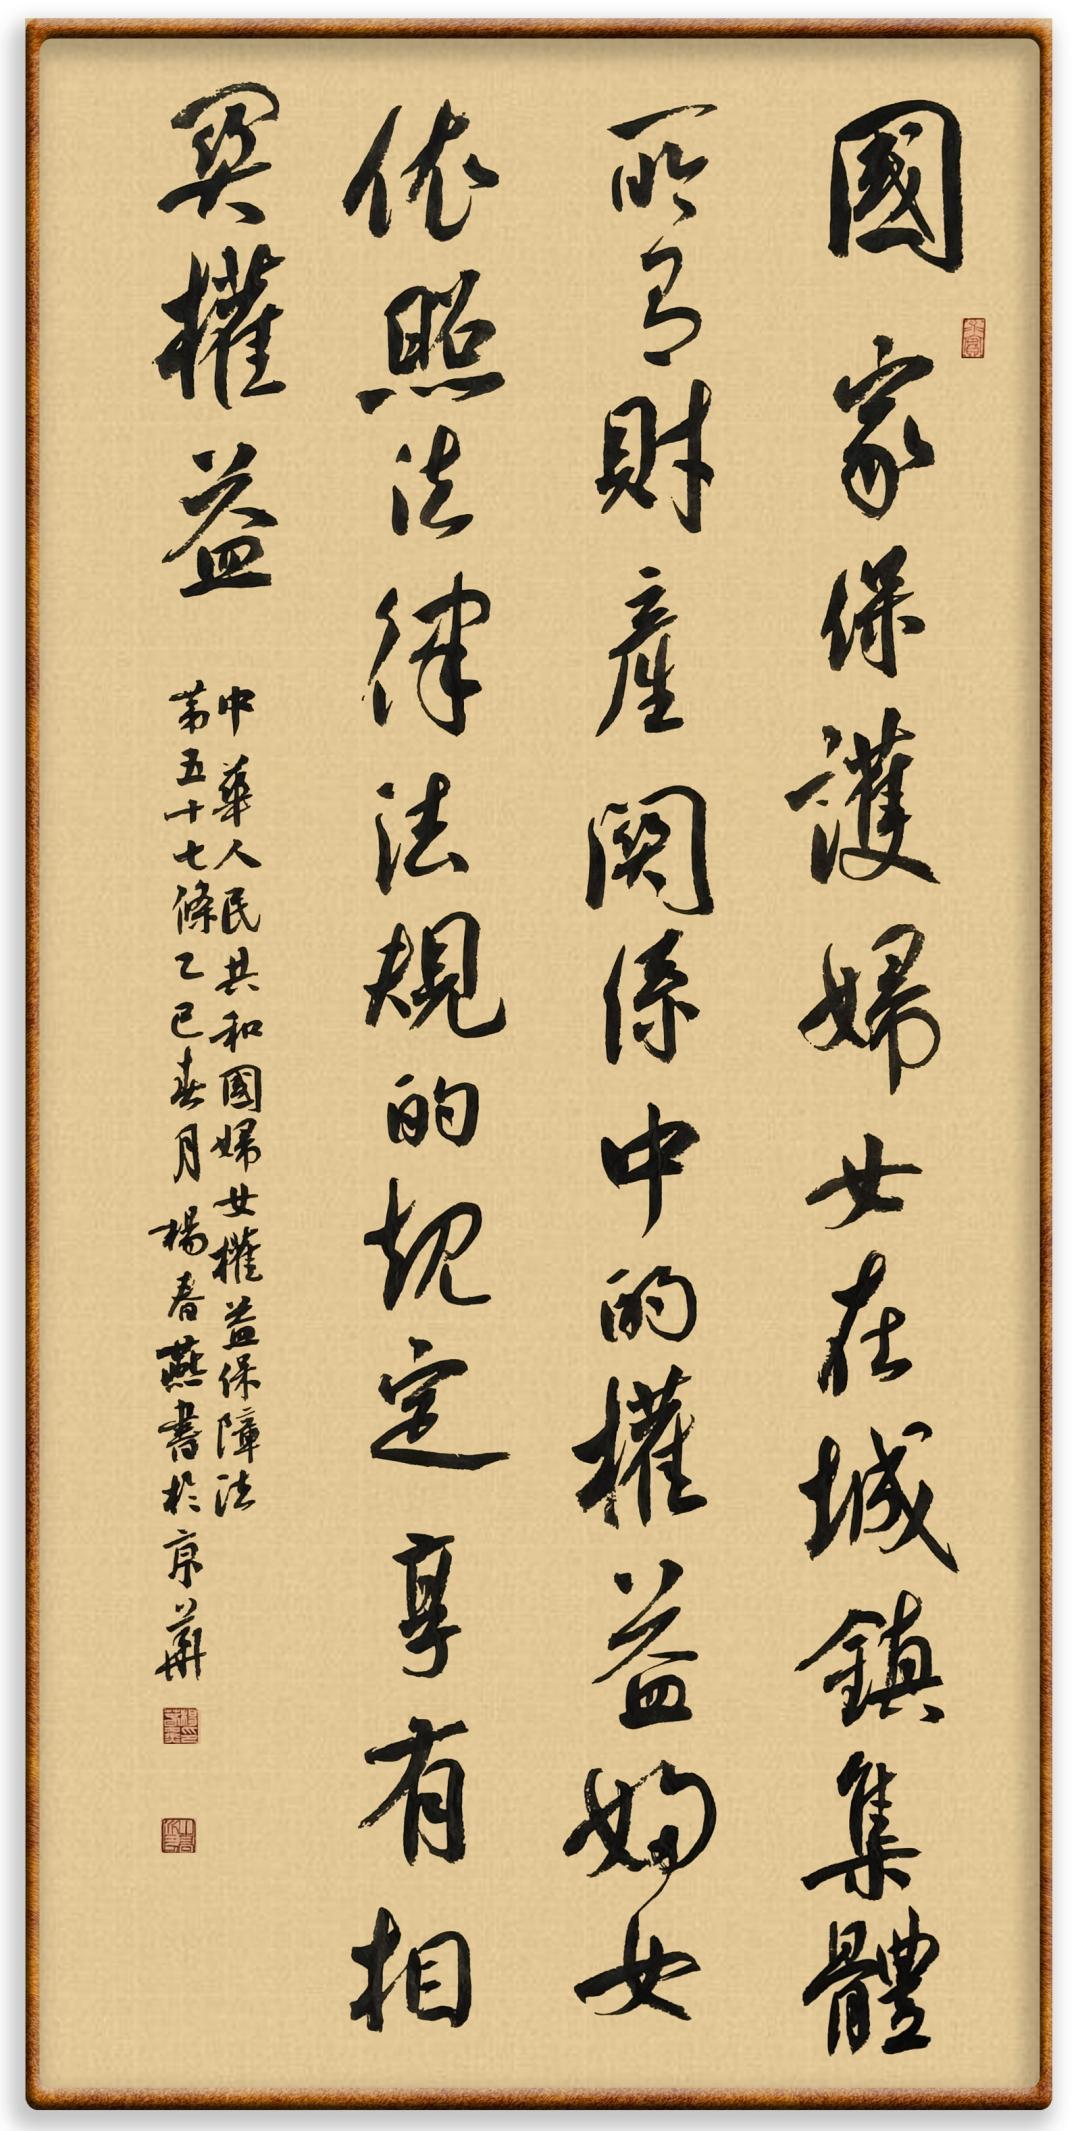 國家保護婦女在城鎮集體
所有財產關係中的權益婦女
依照法律法規的規定享有相
關權益
中華人民共和國婦女權益保障法
第五十七條乙巳春月楊春燕書於京華